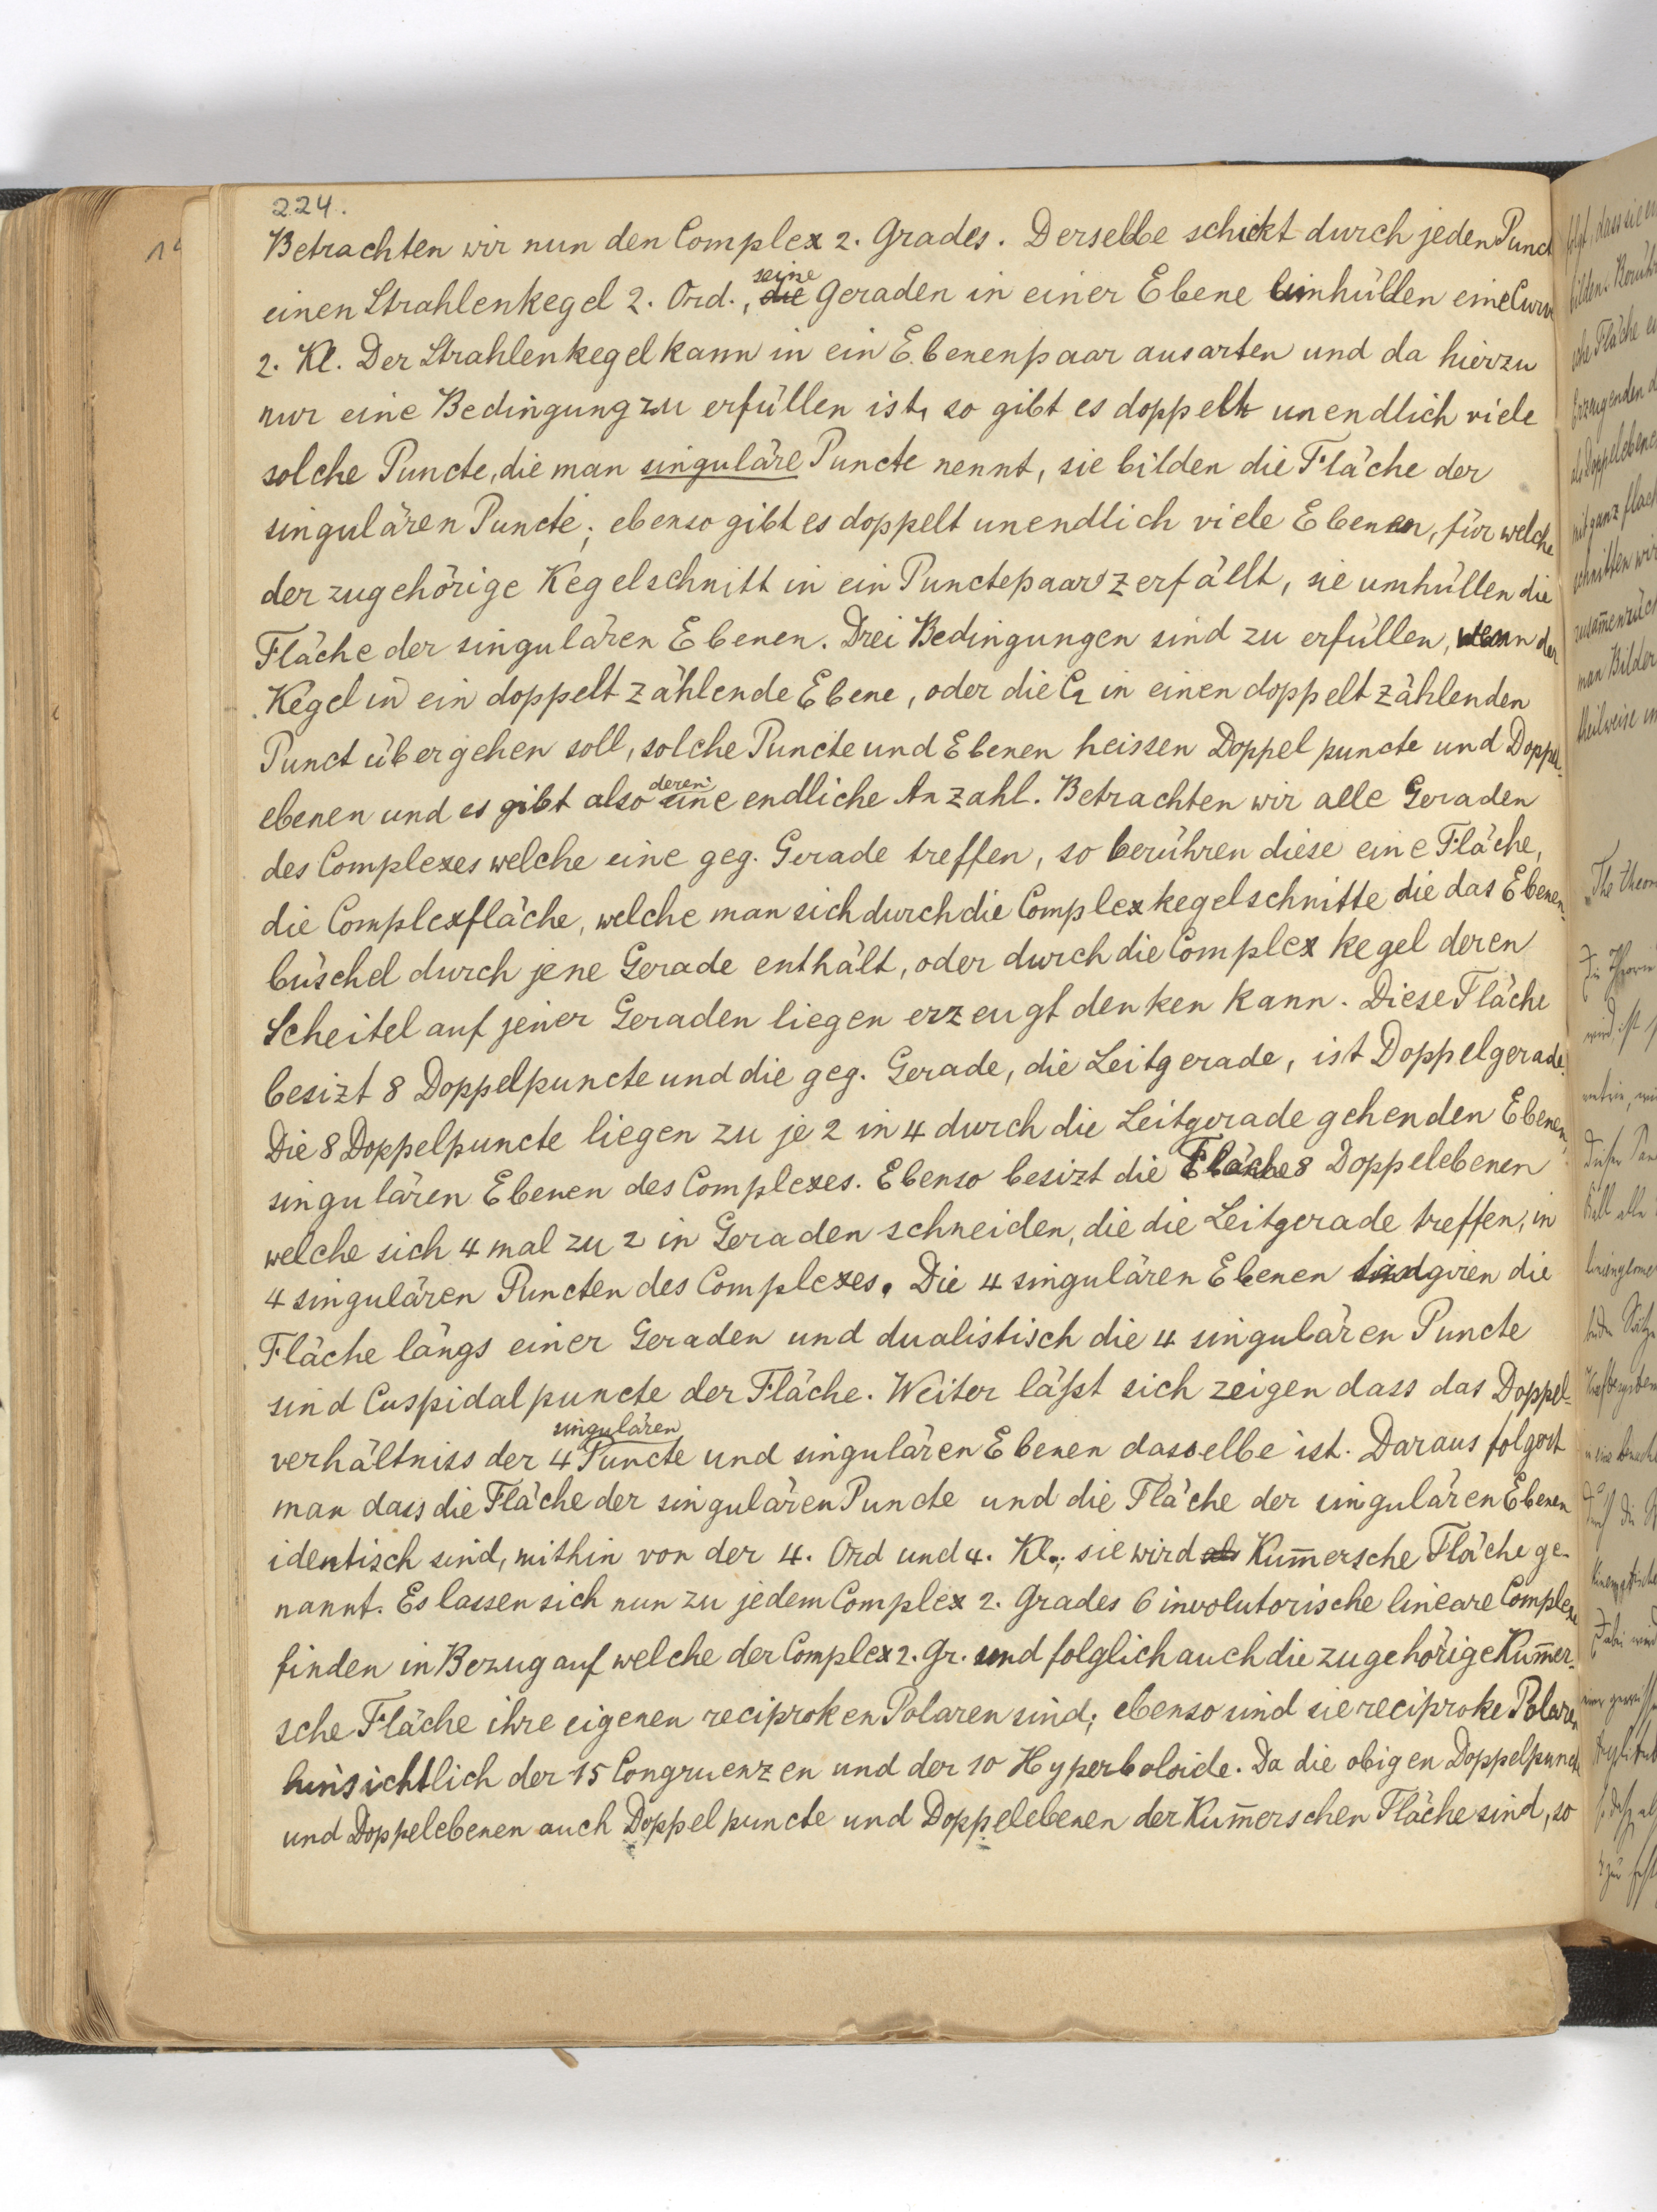 224.
Betrachten wir nun den Complex 2. Grades. Derselbe schickt durch jeden Punct
einen Strahlenkegel 2. Ord., seine Geraden in einer Ebene umhüllen eine Curv
2. Kl. Der Strahlenkegel kann in ein Ebenenpaar ausarten und da hierzu
nur eine Bedingung zu erfüllen ist, so gibt es doppelt unendlich viele
solche Puncte, die man singuläre Puncte nennt, sie bilden die Fläche der
singulären Puncte; ebenso gibt es doppelt unendlich viele Ebenen, für welche
der zugehörige Kegelschnitt in ein Punctepaar zerfällt, sie umhüllen die
Fläche der singulären Ebenen. Drei Bedingungen sind zu erfüllen, wenn der
Kegel in ein doppelt zählende Ebene, oder die C2 in einen doppelt zählenden
Punct übergehen soll, solche Puncte und Ebenen heissen Doppelpuncte und Doppel-
ebenen und es gibt also deren eine endliche Anzahl. Betrachten wir alle Geraden
des Complexes welche eine geg. Gerade treffen, so berühren diese eine Fläche,
die Complexfläche, welche man sich durch die Complexkegelschnitte die das Ebenen-
büschel durch jene Gerade enthält, oder durch die Complexkegel deren
Scheitel auf jener Geraden liegen erzeugt denken kann. Diese Fläche
besizt 8 Doppelpuncte und die geg. Gerade, die Leitgerade, ist Doppelgerade.
Die 8 Doppelpuncte liegen zu je 2 in 4 durch die Leitgerade gehenden Ebenen,
singulären Ebenen des Complexes. Ebenso besizt die Fläche 8 Doppelebenen
welche sich 4 mal zu 2 in Geraden schneiden, die die Leitgerade treffen, in
4 singulären Puncten des Complexes. Die 4 singulären Ebenen tangiren die
Fläche längs einer Geraden und dualistisch die 4 singulären Puncte
sind Cuspidalpuncte der Fläche. Weiter läßt sich zeigen dass das Doppel-
verhältniss der 4 singulären Puncte und singulären Ebenen dasselbe ist. Daraus folgert
man dass die Fläche der singulären Puncte und die Fläche der singulären Ebenen
identisch sind, mithin von der 4. Ord und 4. Kl.; sie wird als Kum̅ersche Fläche ge-
nannt. Es lassen sich nun zu jedem Complex 2. Grades 6 involutorische lineare Complexe
finden in Bezug auf welche der Complex 2. Gr. und folglich auch die zugehörige Kum̅er-
sche Fläche ihre eigenen reciproken Polaren sind; ebenso sind sie reciproke Polaren
hinsichtlich der 15 Congruenzen und der 10 Hyperboloide. Da die obigen Doppelpuncte
und Doppelebenen auch Doppelpuncte und Doppelebenen der Kum̅erschen Fläche sind, so